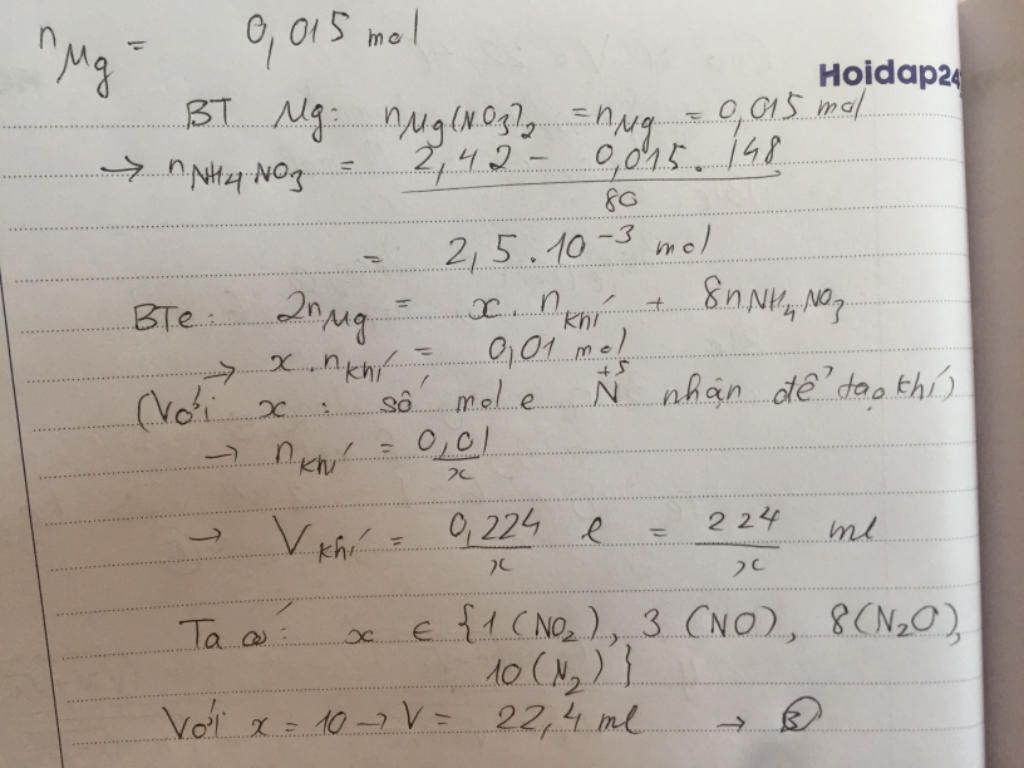 nMg = 0,015 mol
Hoidap24
BT Mg: nMg(NO3)2 = nMg = 0,015 mol
→ nNH4NO3 = 2,42 - 0,015. 148
80
= 2,5.10-3 mol
BTe: 2nMg = x. nkhí + 8nNH4NO3
→ x.nkhí = 0,01 mol
(Với x: số mol e N+5 nhận để tạo khí)
→ nkhí = 0,01/x
→ Vkhí = 0,224/x l = 224/x ml
Ta có: x ∈ {1(NO2), 3(NO), 8(N2O),
10(N2)}
Với x = 10 → V = 22,4 ml → B